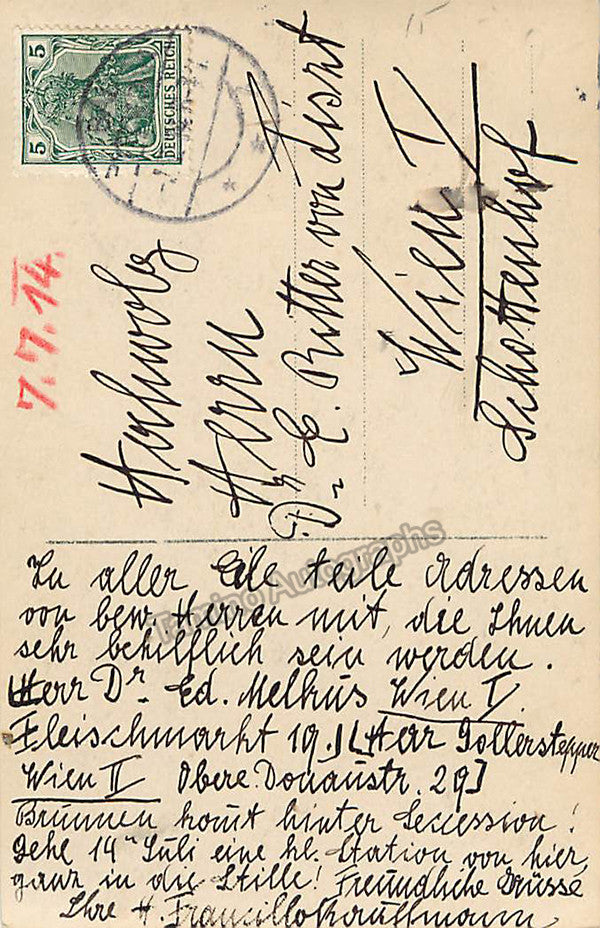 5
DEUTSCHES REICH
5
7.7.14.
Hochwolg
Herrn
Dr E. Ritter von Liszt
Wien I
Schottenhof
In aller Eile teile Adressen
von bew. Herren mit, die Ihnen
sehr behilflich sein werden.
Herr Dr. Ed. Melkus Wien I.
Fleischmarkt 19. Herr Gollerstepper
Wien II Obere Donaustr. 29
Brunnen komt hinter Secession!
Gehe 14ⁿ Juli eine kl. Station von hier,
ganz in die Stille! Freundliche Grüsse
Ihre H. Francillo Kauffmann
Tamino Autographs